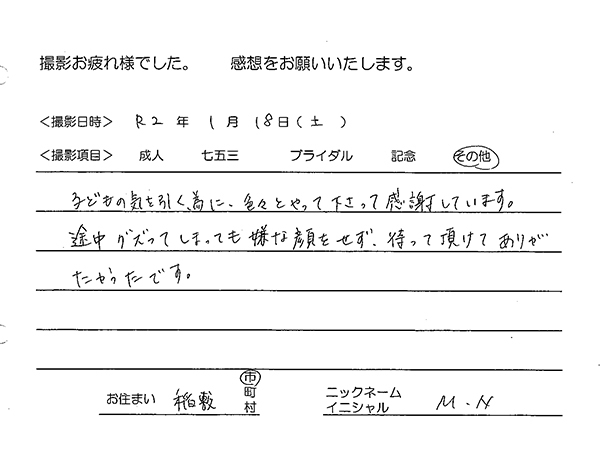 撮影お疲れ様でした。 感想をお願いいたします。
<撮影日時> R2 年 1月 18日(土)
<撮影項目> 成人 七五三 ブライダル 記念 その他
子どもの気を引く為に、色々とやって下さって感謝しています。
途中グズってしまっても嫌な顔をせず、待って頂けてありが
たかったです。
お住まい 稲敷 市 町 村 ニックネーム イニシャル M.N